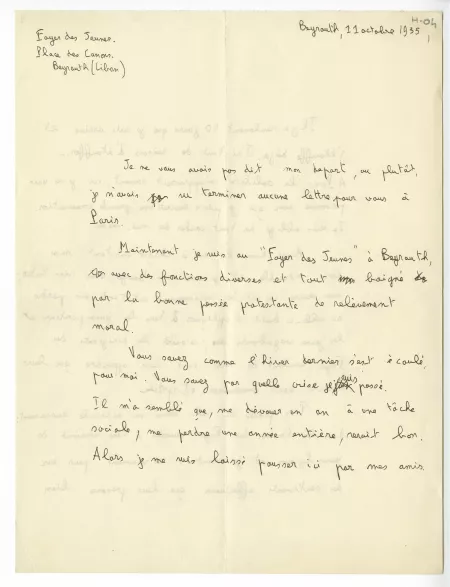 H-04
Foyer des Jeunes.
Place des Canons.
Beyrouth (Liban)
Beyrouth, 11 octobre 1935
Je ne vous avais pas dit mon départ, ou plutôt,
je n'avais su terminer aucune lettre pour vous à
Paris
Maintenant je suis au "Foyer des Jeunes" à Beyrouth,
avec des fonctions diverses et tout baigné
par la bonne pensée protestante de relèvement
moral.
Vous savez comme l'hiver dernier s'est écoulé
pour moi. Vous savez par quelle crise je suis passé.
Il m'a semblé que, me dévouer un an à une tâche
sociale, me perdre une année entière, serait bon.
Alors je me suis laissé pousser ici par mes amis